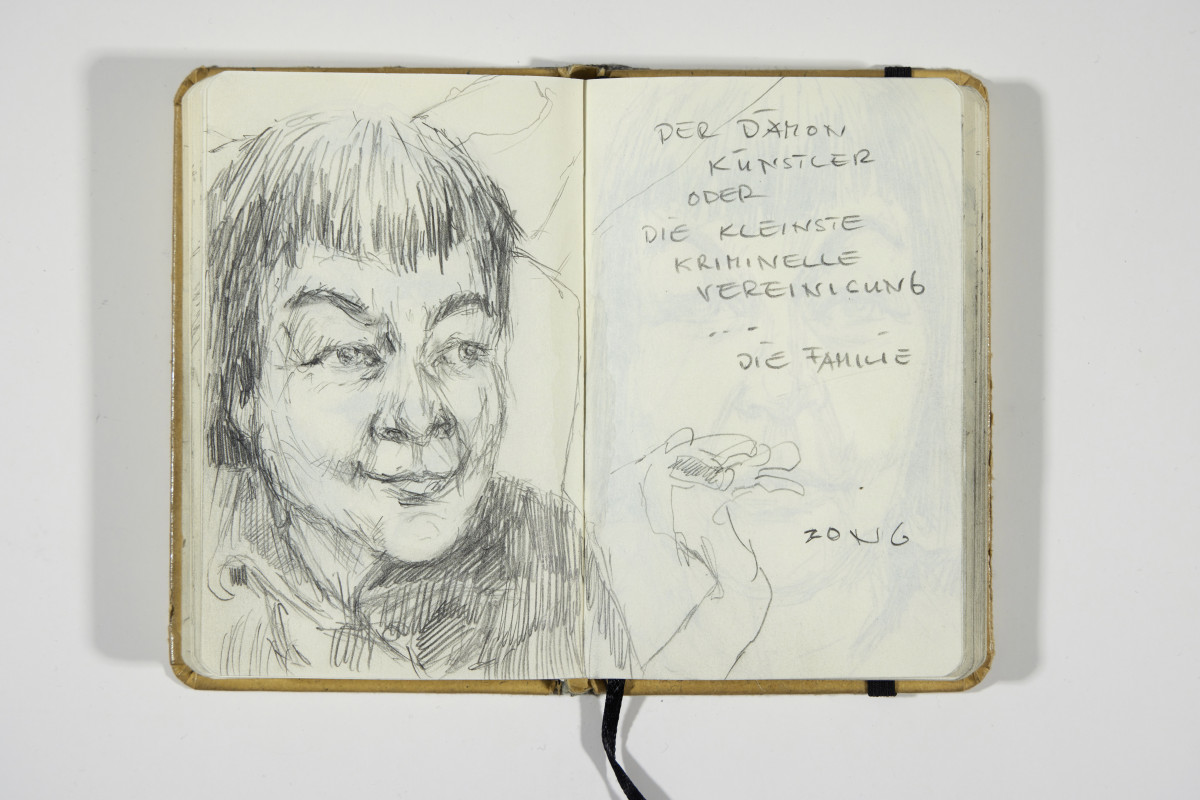 DER DÄMON
KÜNSTLER
ODER
DIE KLEINSTE
KRIMINELLE
VEREINIGUNG
...
DIE FAMILIE
ZONG